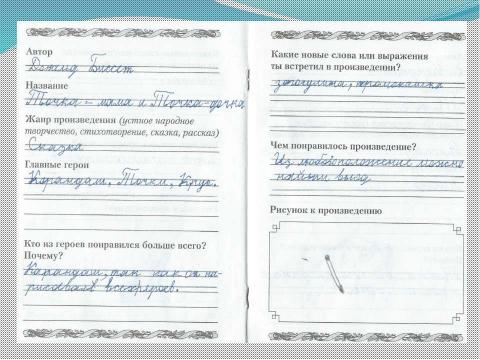 Автор
Дональд Биссет
Название
Точка - мама и Точка-дочка
Жанр произведения (устное народное
творчество, стихотворение, сказка, рассказ)
Сказка
Главные герои
Карандаш, Точки, Круг.
Кто из героев понравился больше всего?
Почему?
Карандаш, так как он на-
рисовал всех героев.
Какие новые слова или выражения
ты встретил в произведении?
промокашка
Чем понравилось произведение?
Из любой положение можно
найти выход
Рисунок к произведению